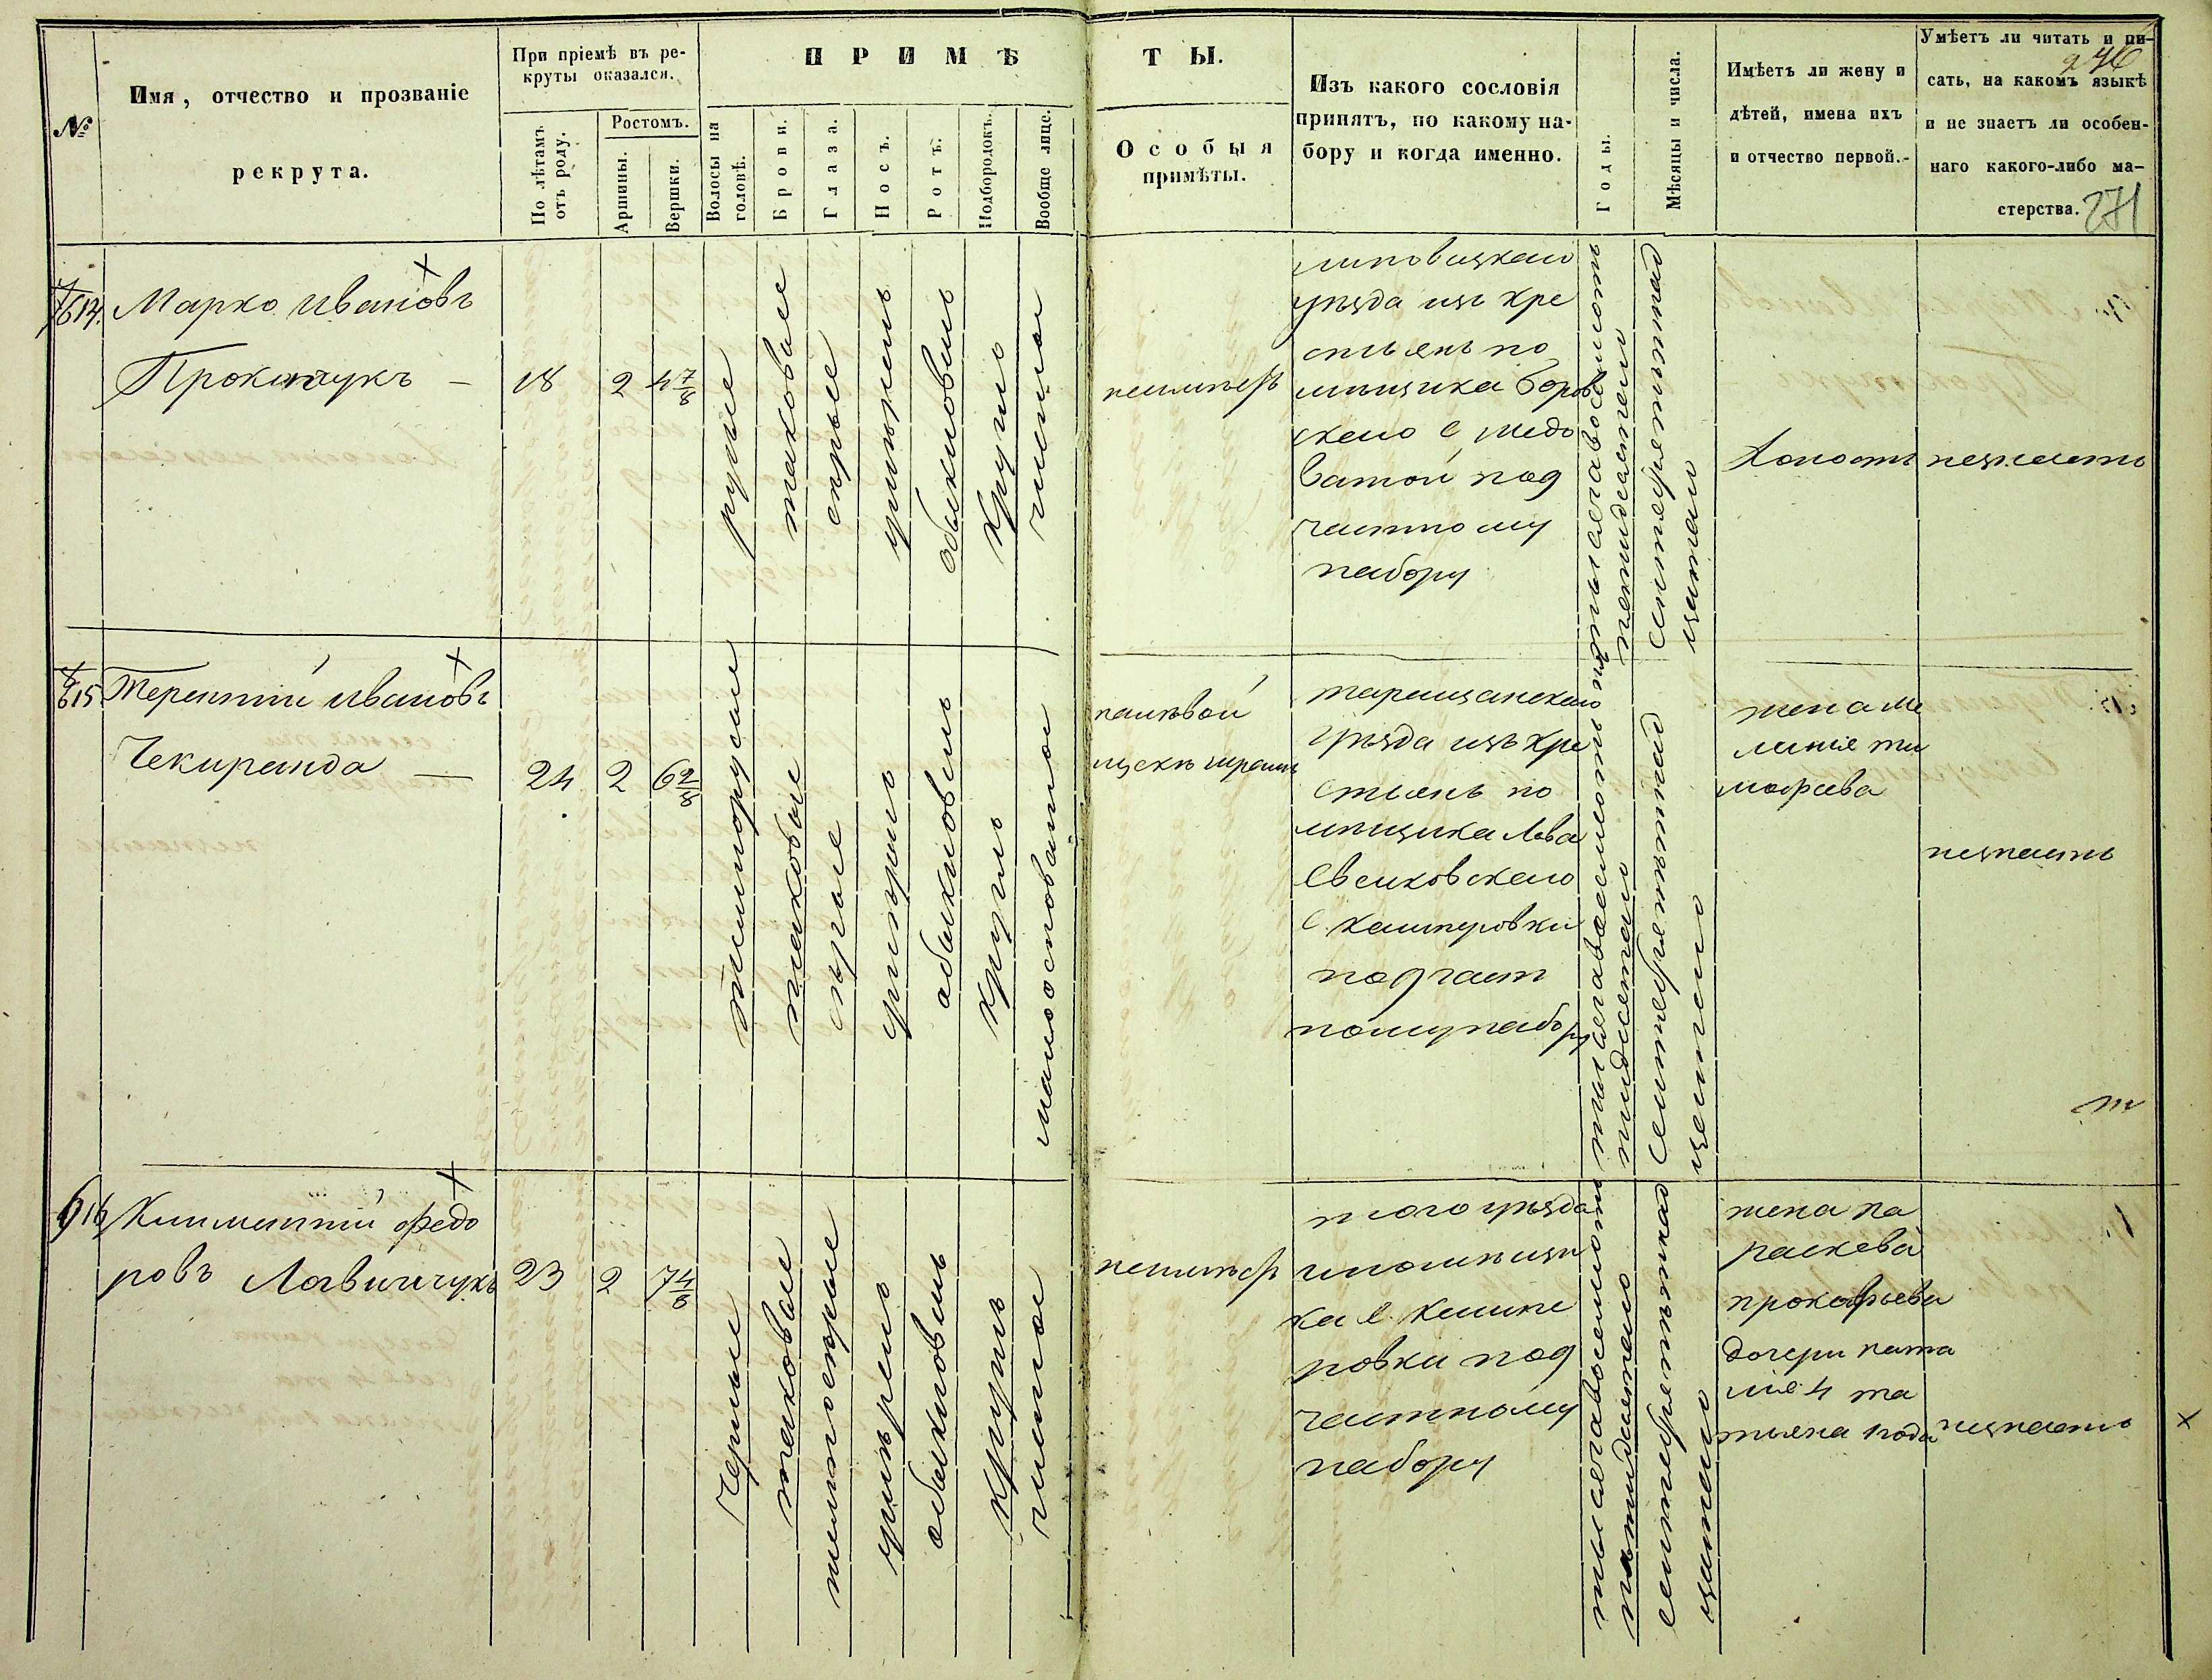 246
271
№
Имя, отчество и прозваніе
рекрута.
При пріемѣ въ ре-
круты оказался.
По лѣтамъ
отъ роду.
Ростомъ.
Аршины.
Вершки.
ПРИМѢ
ТЫ.
Волосы на
головѣ.
Брови.
Глаза.
Носъ.
Ротъ.
Подбородокъ.
Вообще лице.
Особыя
примѣты.
Изъ какого сословія
принятъ, по какому на-
бору и когда именно.
Годы.
Мѣсяцы и числа.
Имѣетъ ли жену и
дѣтей, имена ихъ
и отчество первой.-
Умѣетъ ли читать и пи-
сать, на какомъ языкѣ
и не знаетъ ли особен-
наго какого-либо ма-
стерства.
614.
Марко Ивановъ
Прокопчукъ –
18
2
4 7/8
русые
таковые
серые
умѣренъ
обыкновенъ
круглъ
чистое
липовецкаго
уезда изъ кре
стьянъ по
мещика
с медо
ватой под
частному
набору
тысяча восемсотъ
пятидесятого
сентебря
Холостъ
незнаетъ
615
Терентий Ивановъ
Чекиринда —
24
2
6 2/8
темнорусые
таковые
серые
умѣренъ
обыкновенъ
круглъ
малосповатое
налевой
щекѣ шрамъ
таращанскаго
уезда изъ кре
стьянъ по
мещика Льва
с. кашперовки
под част
ному набору
тысяча восемсотъ
сентебря
жена ме
ланья ти
мофеева
незнаетъ
616
Климентий Федо
ровъ Лавинчукъ
23
2
7 4/8
черные
таковые
темносерые
умѣренъ
обыкновенъ
круглъ
чистое
того уезда
ипомещи
ка с. кашпе
ровки под
частному
набору
тысяча восемсотъ
сентебря
жена па
раскева
прокофьева
дочери ната
лия 4 та
тьяна 1 года
незнаетъ